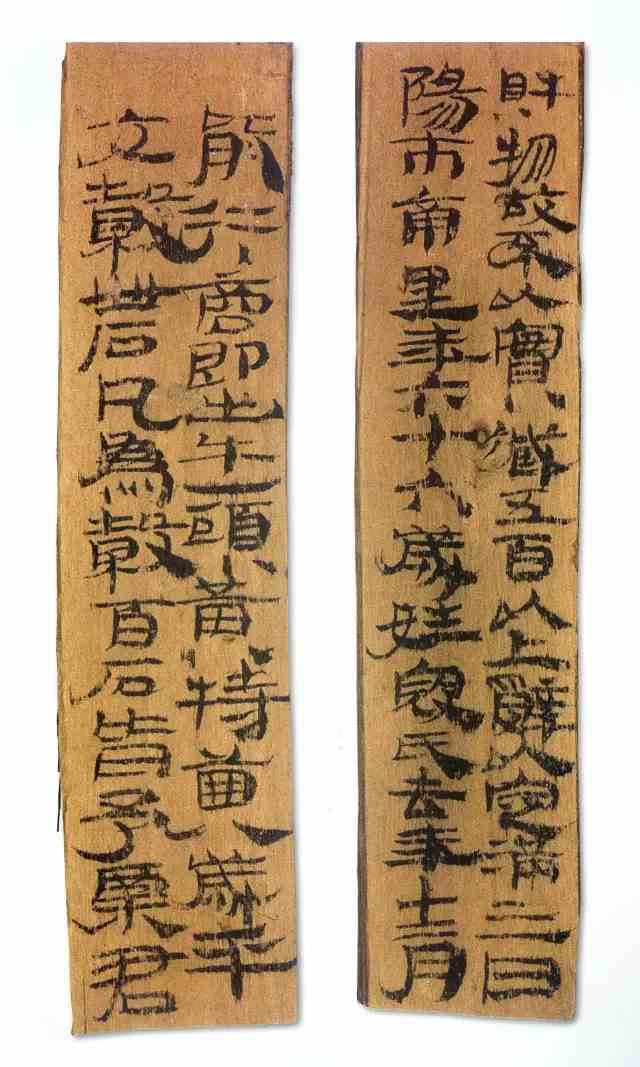 財物故不以實臧五百以上辭以定滿三日
陽市南里年六十六歲姓寇氏去年十二月
能行商即出牛一頭黃特齒八歲平
它穀卌石凡為穀百石皆予粟君